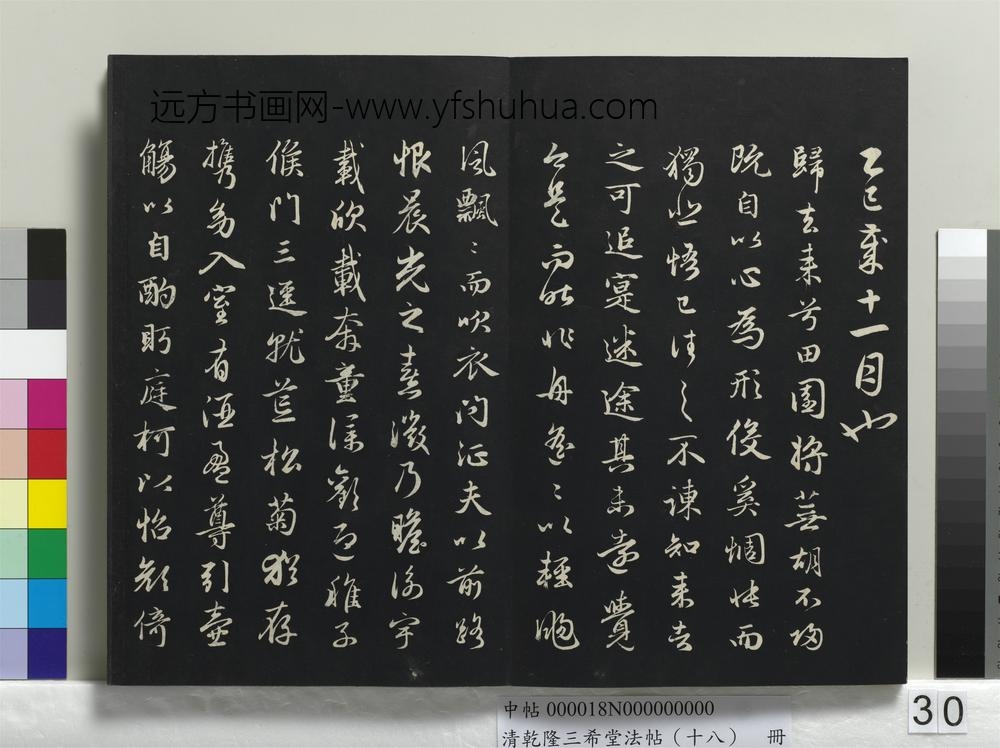 远方书画网-www.yfshuhua.com
乙巳歲十一月也
歸去来兮田園将蕪胡不歸
既自以心為形役奚惆悵而
獨悲悟已往之不諫知来者
之可追寔迷途其未遠覺
今是而昨非舟遙〻以輕颺
風飄〻而吹衣问征夫以前路
恨晨光之熹微乃瞻衡宇
載欣載奔童僕歡迎稚子
候門三逕就荒松菊猶存
携幼入室有酒盈尊引壺
觴以自酌眄庭柯以怡顔倚
中帖 000018N000000000
清乾隆三希堂法帖（十八） 冊
30